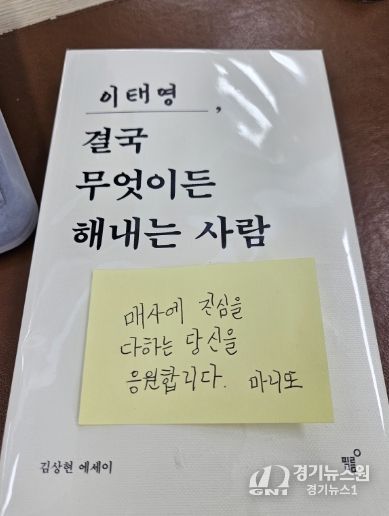 이태영,
결국
무엇이든
해내는 사람
매사에 진심을
다하는 당신을
응원합니다. 마니또
김상현 에세이
필름
경기뉴스원
GN1 경기뉴스1